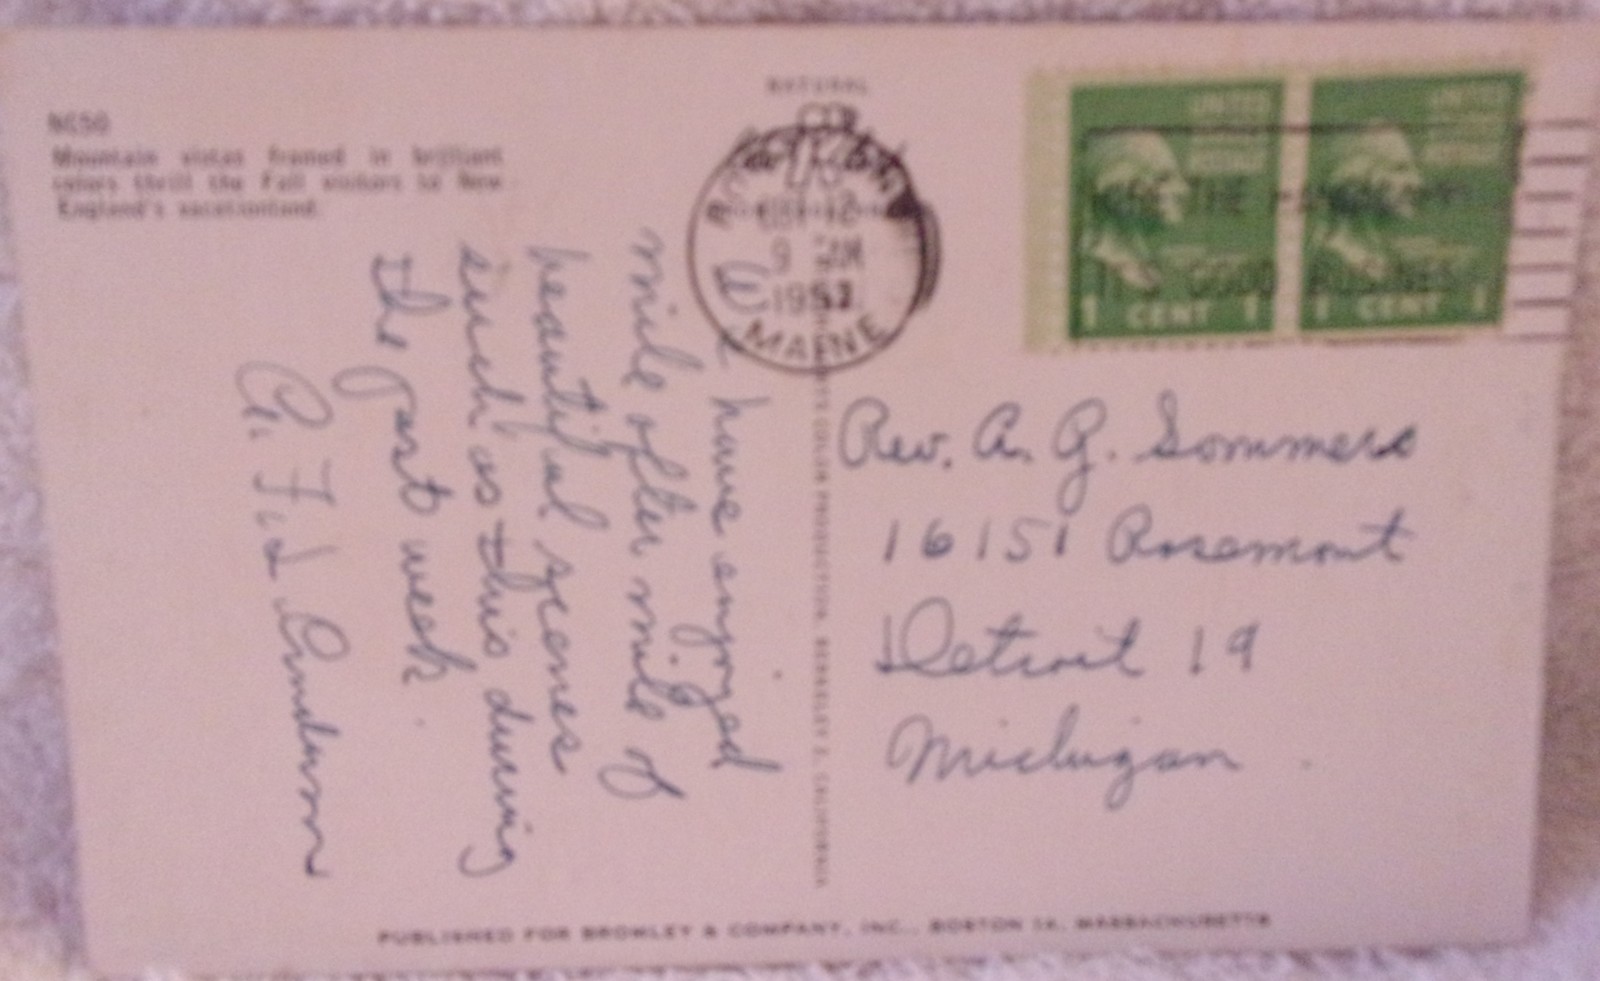 NC50
Mountain vistas framed in brilliant
colors thrill the Fall visitors to New
England's vacationland.
We have enjoyed
mile after mile of
beautiful scenes
such as this during
the past week.
NATURAL
COLOR PRODUCTION, BERKELEY 2, CALIFORNIA
9 AM
195
MAINE
UNITED
UNITED
THE
IT'S GOOD BUSINESS
1 CENT 1
1 CENT 1
Rev. A. G. Sommers
16151 Rosemont
Detroit 19
Michigan
PUBLISHED FOR BROMLEY & COMPANY, INC., BOSTON 14, MASSACHUSETTS